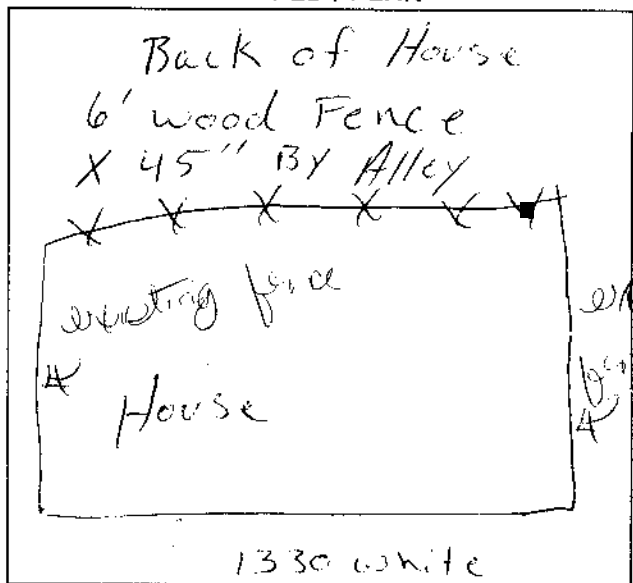 Back of House
6' wood Fence
X 45" By Alley
existing fence
House
1330 white